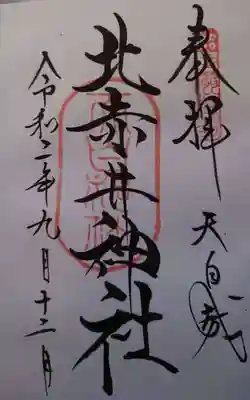 奉拝
天白
北赤井神社
令和二年九月十二日